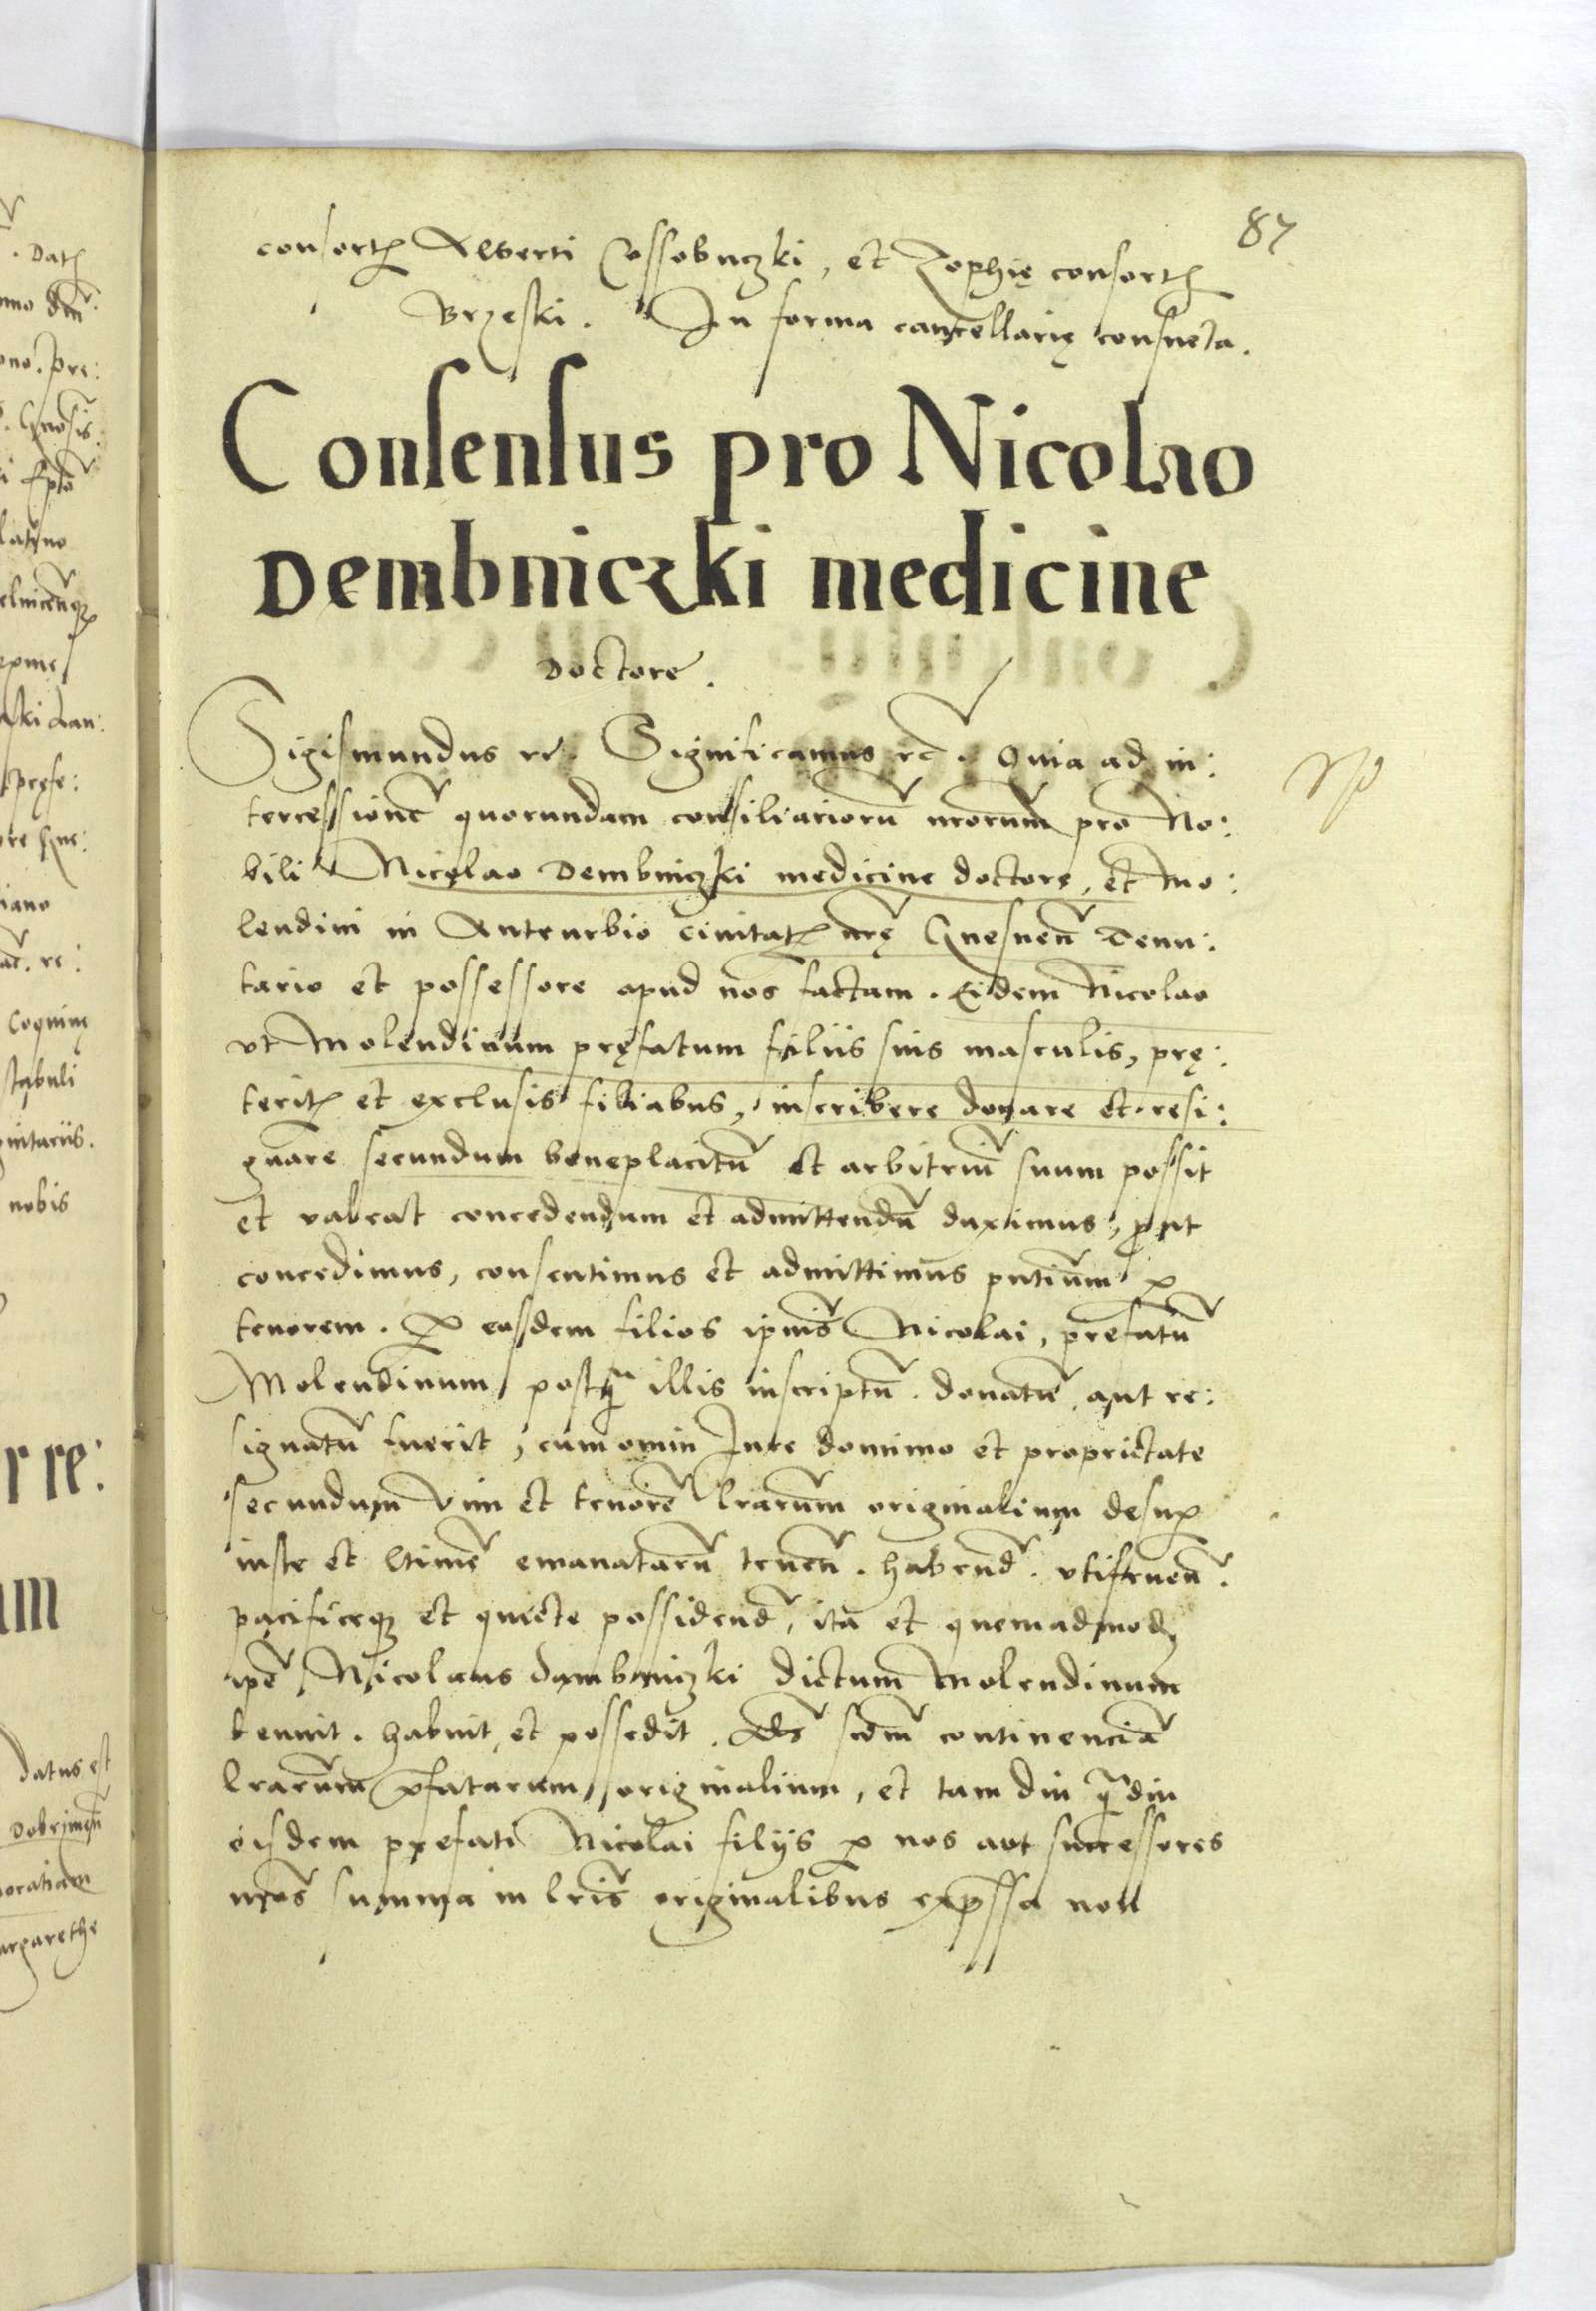 87
consortꝭ Alberti Cossobuczki, et Zophię consortꝭ
Brzeski. In forma cancellarię consueta.
Consensus pro Nicolao
Dembniczki medicine
Doctore.
Sigismundus rc̃. Significamus rc̃. Quia ad in:
tercessionẽ quorundam consiliariorũ nrorum̃ pro No:
bili Nicolao Dembniczki medicine doctore, et Mo:
lendini in Anteurbio Civitatꝭ nrę̃ Gnesneñ Tenu:
tario et possessore apud nos factam. Eidem Nicolao
vt Molendinum pręfatum filiis suis masculis, prę:
teritꝭ et exclusis filiabus, inscribere donare et resi:
gnare secundum beneplacitũ et arbitriũ suum possit
et valeat concedendum et admittendũ duximus, ꝓut
concedimus, consentimus et admittimus pñtium̃ ꝑ
tenorem. Per eosdem filios ipius̃ Nicolai, prefatũ
Molendinum postꝗ̃ illis inscriptũ. donatũ, aut re:
signatũ fuerit, cum omni Jure dominio et proprietate
secundum Vim et tenorẽ lrarum̃ originalium desuꝑ
iuste et ltimẽ emanatarũ teneñ. habend̃. vtifrueñ.
pacificeqꝫ et quiete possidend̃, ita et quemadmodꝫ
ipẽ Nicolaus Dambniczki dictum Molendinum
tenuit. habuit, et possedit. scdm̃ continenciã
lrarum̃ p̃fatarum originalium, et tam diu ꝗ̃diu
eisdem prefati Nicolai filijs ꝑ nos aut successores
nros̃ summa in lris̃ originalibus exp̃ssa non
. Datꝭ
nno dñi
ono. pre:
latino
ski Lan:
pręfe:
iano
Coquinę
stabuli
nitariis.
nobis
r re:
um
datus est
Dobrineñ
oratiam
argarethe